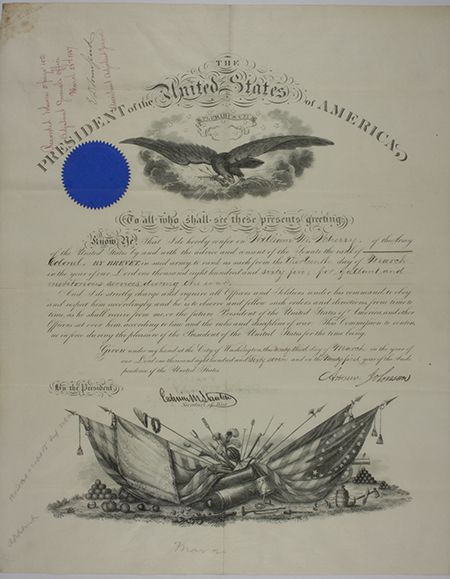 THE
United States
PRESIDENT of the
of AMERICA,
To all who shall see these presents greeting:
Know Ye, That I do hereby confer on William of the Army
of the United States by and with the advice and consent of the Senate the rank of
Colonel BY BREVET in said army to rank as such from the day of March
in the year of our Lord one thousand eight hundred and sixty five, for gallant and
meritorious services during the war.
And I do strictly charge and require all Officers and Soldiers under his command to obey
and respect him accordingly and he is to observe and follow such orders and directions from time to
time, as he shall receive from me, or the future President of the United States of America, and other
Officers set over him, according to law and the rules and discipline of war. This Commission to contin-
ue in force during the pleasure of the President of the United States for the time being.
Given under my hand at the City of Washington, this day of March in the year of
our Lord one thousand eight hundred and sixty seven and in the ninety first year of the Inde-
pendence of the United States.
Andrew Johnson
By the President,
Edwin M. Stanton
Secretary of War.